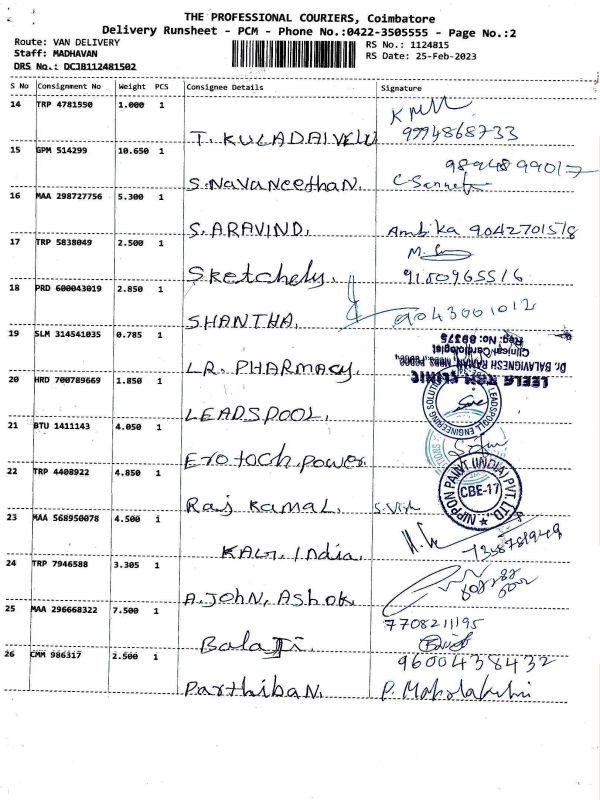 THE PROFESSIONAL COURIERS, Coimbatore
Delivery Runsheet - PCM - Phone No.:0422-3505555 - Page No.:2
Route: VAN DELIVERY
Staff: MADHAVAN
DRS No.: DCJB112481502
RS No.: 1124815
RS Date: 25-Feb-2023
S No Consignment No Weight PCS Consignee Details Signature
14 TRP 4781550 1.000 1
T. KULADAIVELU 9994868733
15 GPM 514299 10.650 1
9894899017
S.Navaneethan.
16 MAA 298727756 5.300 1
S. ARAVIND. Ambika 9042701578
17 TRP 5838049 2.500 1
Sketchely. 9150965516
18 PRD 600043019 2.850 1
SHANTHA. 9043001012
19 SLM 314541035 0.785 1
Reg: No: 89375
Clinical Cardiologist
Dr. BALAVIGNESH RAMAN
LR. PHARMACY.
LEELA CLINIC
20 HRD 700789669 1.850 1
LEADSPOOL.
LEADSPOOL ENGINEERING SOLUTIONS
21 BTU 1411143 4.050 1
Erotech power
22 TRP 4408922 4.850 1
Raj Kamal.
NIPPON PAINT (INDIA) PVT. LTD.
CBE-17
23 MAA 568950078 4.500 1
KALI. India.
24 TRP 7946588 3.305 1
A.JOHN, Ashok
25 MAA 296668322 7.500 1
7708211195
Balaji.
26 CMM 986317 2.500 1
9600438432
Parthiban. P. Mahalakshmi